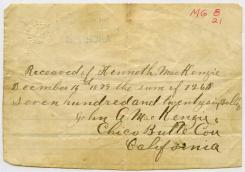 MG 8
21
Received of Kenneth MacKenzie
December 16th 1879 the sum of $726.00
Seven hundred and twenty six Dollars
John A. McKenzie
Chico Butte Cou
California